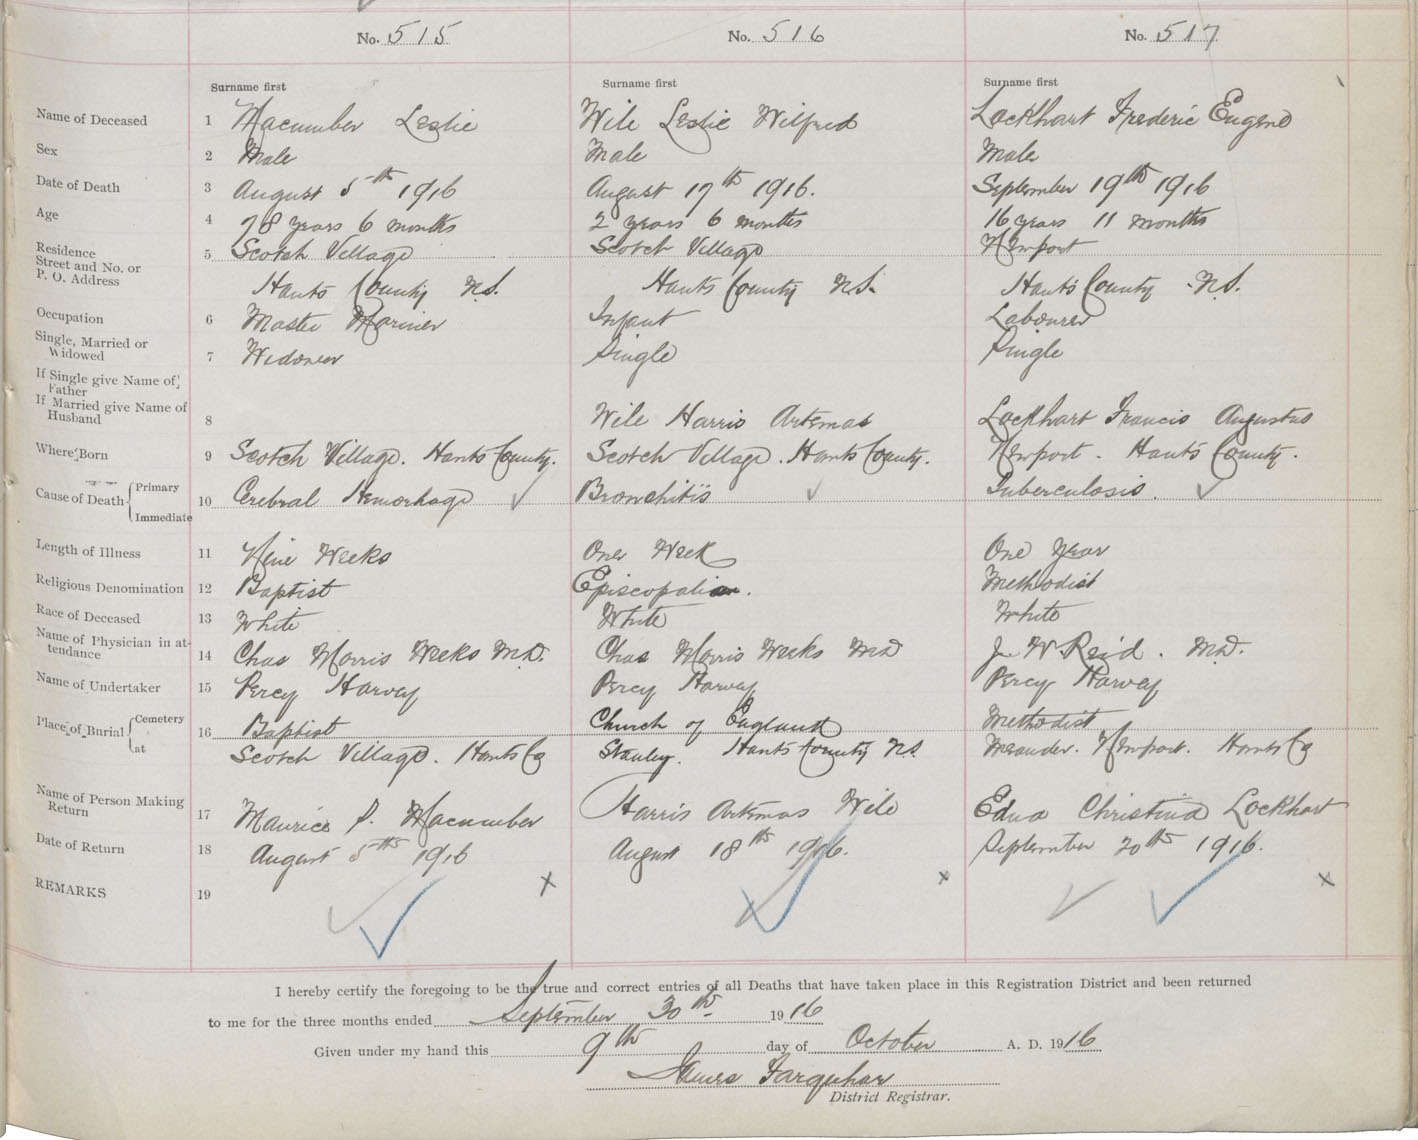 No. 515 No. 516 No. 517
Surname first Surname first Surname first
Name of Deceased 1 Macumber Leslie Wile Leslie Wilfred Lockhart Frederic Eugene
Sex 2 Male Male Male
Date of Death 3 August 5th 1916 August 17th 1916. September 19th 1916
Age 4 78 years 6 months 2 years 6 months 16 years 11 months
Residence Street and No. or P. O. Address 5 Scotch Village Scotch Village Newport
Hants County N.S. Hants County N.S. Hants County N.S.
Occupation 6 Master Mariner Infant Labourer
Single, Married or Widowed 7 Widower Single Single
If Single give Name of Father
If Married give Name of Husband 8 Wile Harris Artemas Lockhart Francis Augustus
Where Born 9 Scotch Village. Hants County. Scotch Village. Hants County. Newport. Hants County.
Cause of Death { Primary 10 Cerebral Hemorhage Bronchitis Tuberculosis.
Immediate
Length of Illness 11 Nine Weeks One Week One Year
Religious Denomination 12 Baptist Episcopalian. Methodist
Race of Deceased 13 White White White
Name of Physician in attendance 14 Chas Morris Weeks M.D. Chas Morris Weeks MD J W Reid. M.D.
Name of Undertaker 15 Percy Harvey Percy Harvey Percy Harvey
Place of Burial { Cemetery 16 Baptist Church of England Methodist
at Scotch Village. Hants Co Stanley. Hants County N.S. Meander. Newport. Hants Co
Name of Person Making Return 17 Maurice P. Macumber Harris Artemas Wile Edna Christina Lockhart
Date of Return 18 August 5th 1916 August 18th 1916. September 20th 1916.
REMARKS 19 x x x
I hereby certify the foregoing to be the true and correct entries of all Deaths that have taken place in this Registration District and been returned
to me for the three months ended September 30th 1916
Given under my hand this 9th day of October A. D. 1916
James Farquhar
District Registrar.